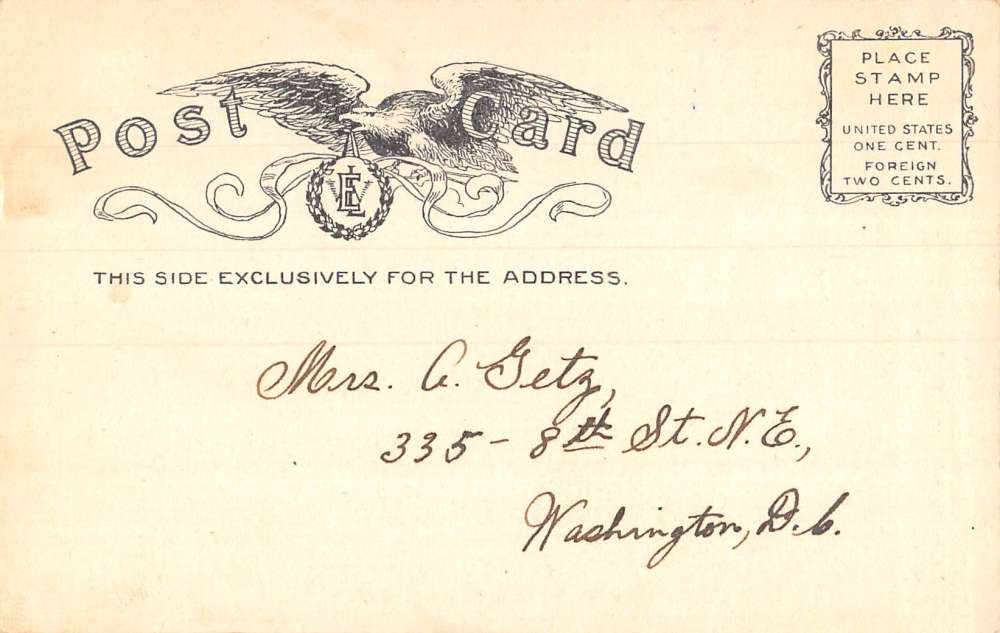 Post Card
PLACE
STAMP
HERE
UNITED STATES
ONE CENT.
FOREIGN
TWO CENTS.
THIS SIDE EXCLUSIVELY FOR THE ADDRESS.
Mrs. A. Getz,
335 - 8th St. N.E.,
Washington, D.C.